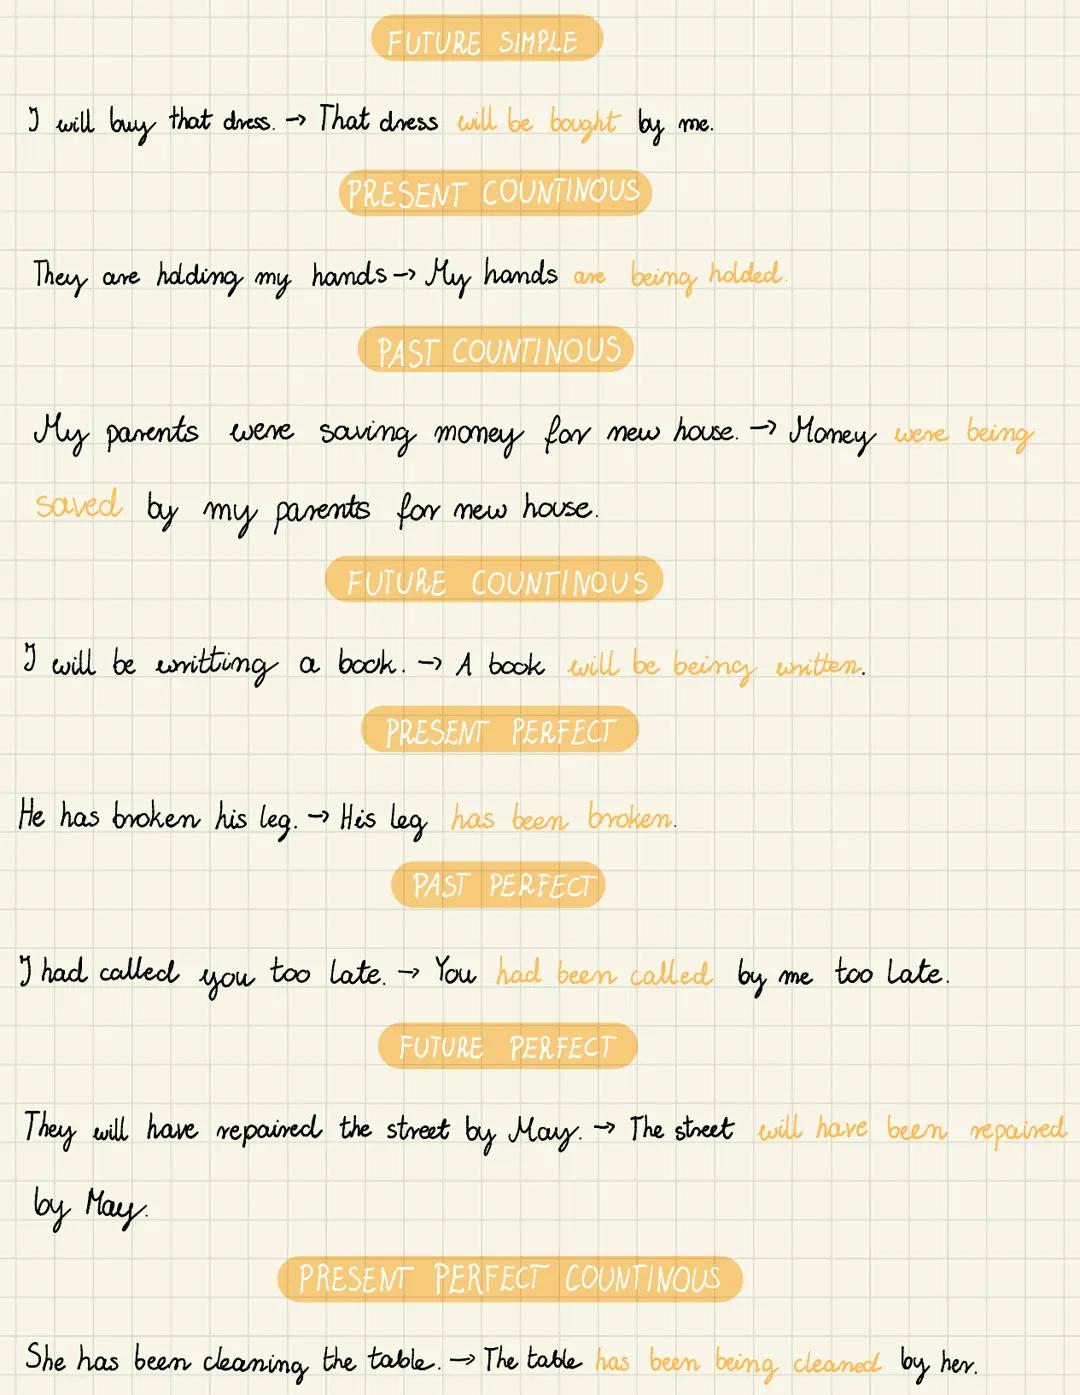 FUTURE SIMPLE
I will buy that dress. → That dress will be bought by me.
PRESENT COUNTINOUS
They are holding my hands → My hands are being holded.
PAST COUNTINOUS
My parents were saving money for new house. → Money were being
saved by my parents for new house.
FUTURE COUNTINOUS
I will be writting a book. → A book will be being written.
PRESENT PERFECT
He has broken his leg. → His leg has been broken.
PAST PERFECT
I had called you too late. → You had been called by me too late.
FUTURE PERFECT
They will have repaired the street by May. → The street will have been repaired
by May.
PRESENT PERFECT COUNTINOUS
She has been cleaning the table. → The table has been being cleaned by her.